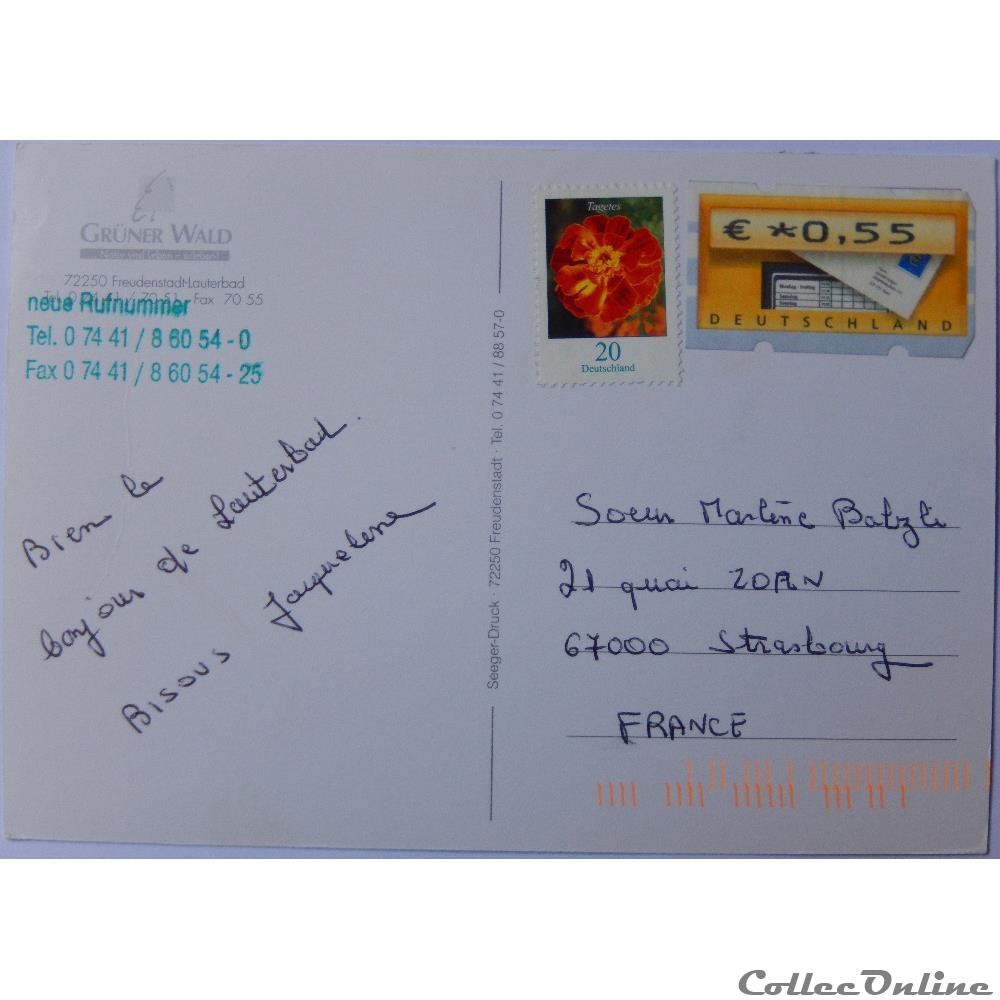 GRÜNER WALD
72250 Freudenstadt-Lauterbad
Fax 70 55
neue Rufnummer
Tel. 0 74 41 / 8 60 54 - 0
Fax 0 74 41 / 8 60 54 - 25
Bien le
bonjour de Lauterbad.
Bisous Jacqueline
Seeger-Druck · 72250 Freudenstadt · Tel. 0 74 41 / 88 57-0
Tagetes
20
Deutschland
€ *0,55
DEUTSCHLAND
Soeur Marlène Batzli
21 quai ZORN
67000 Strasbourg
FRANCE
CollecOnline